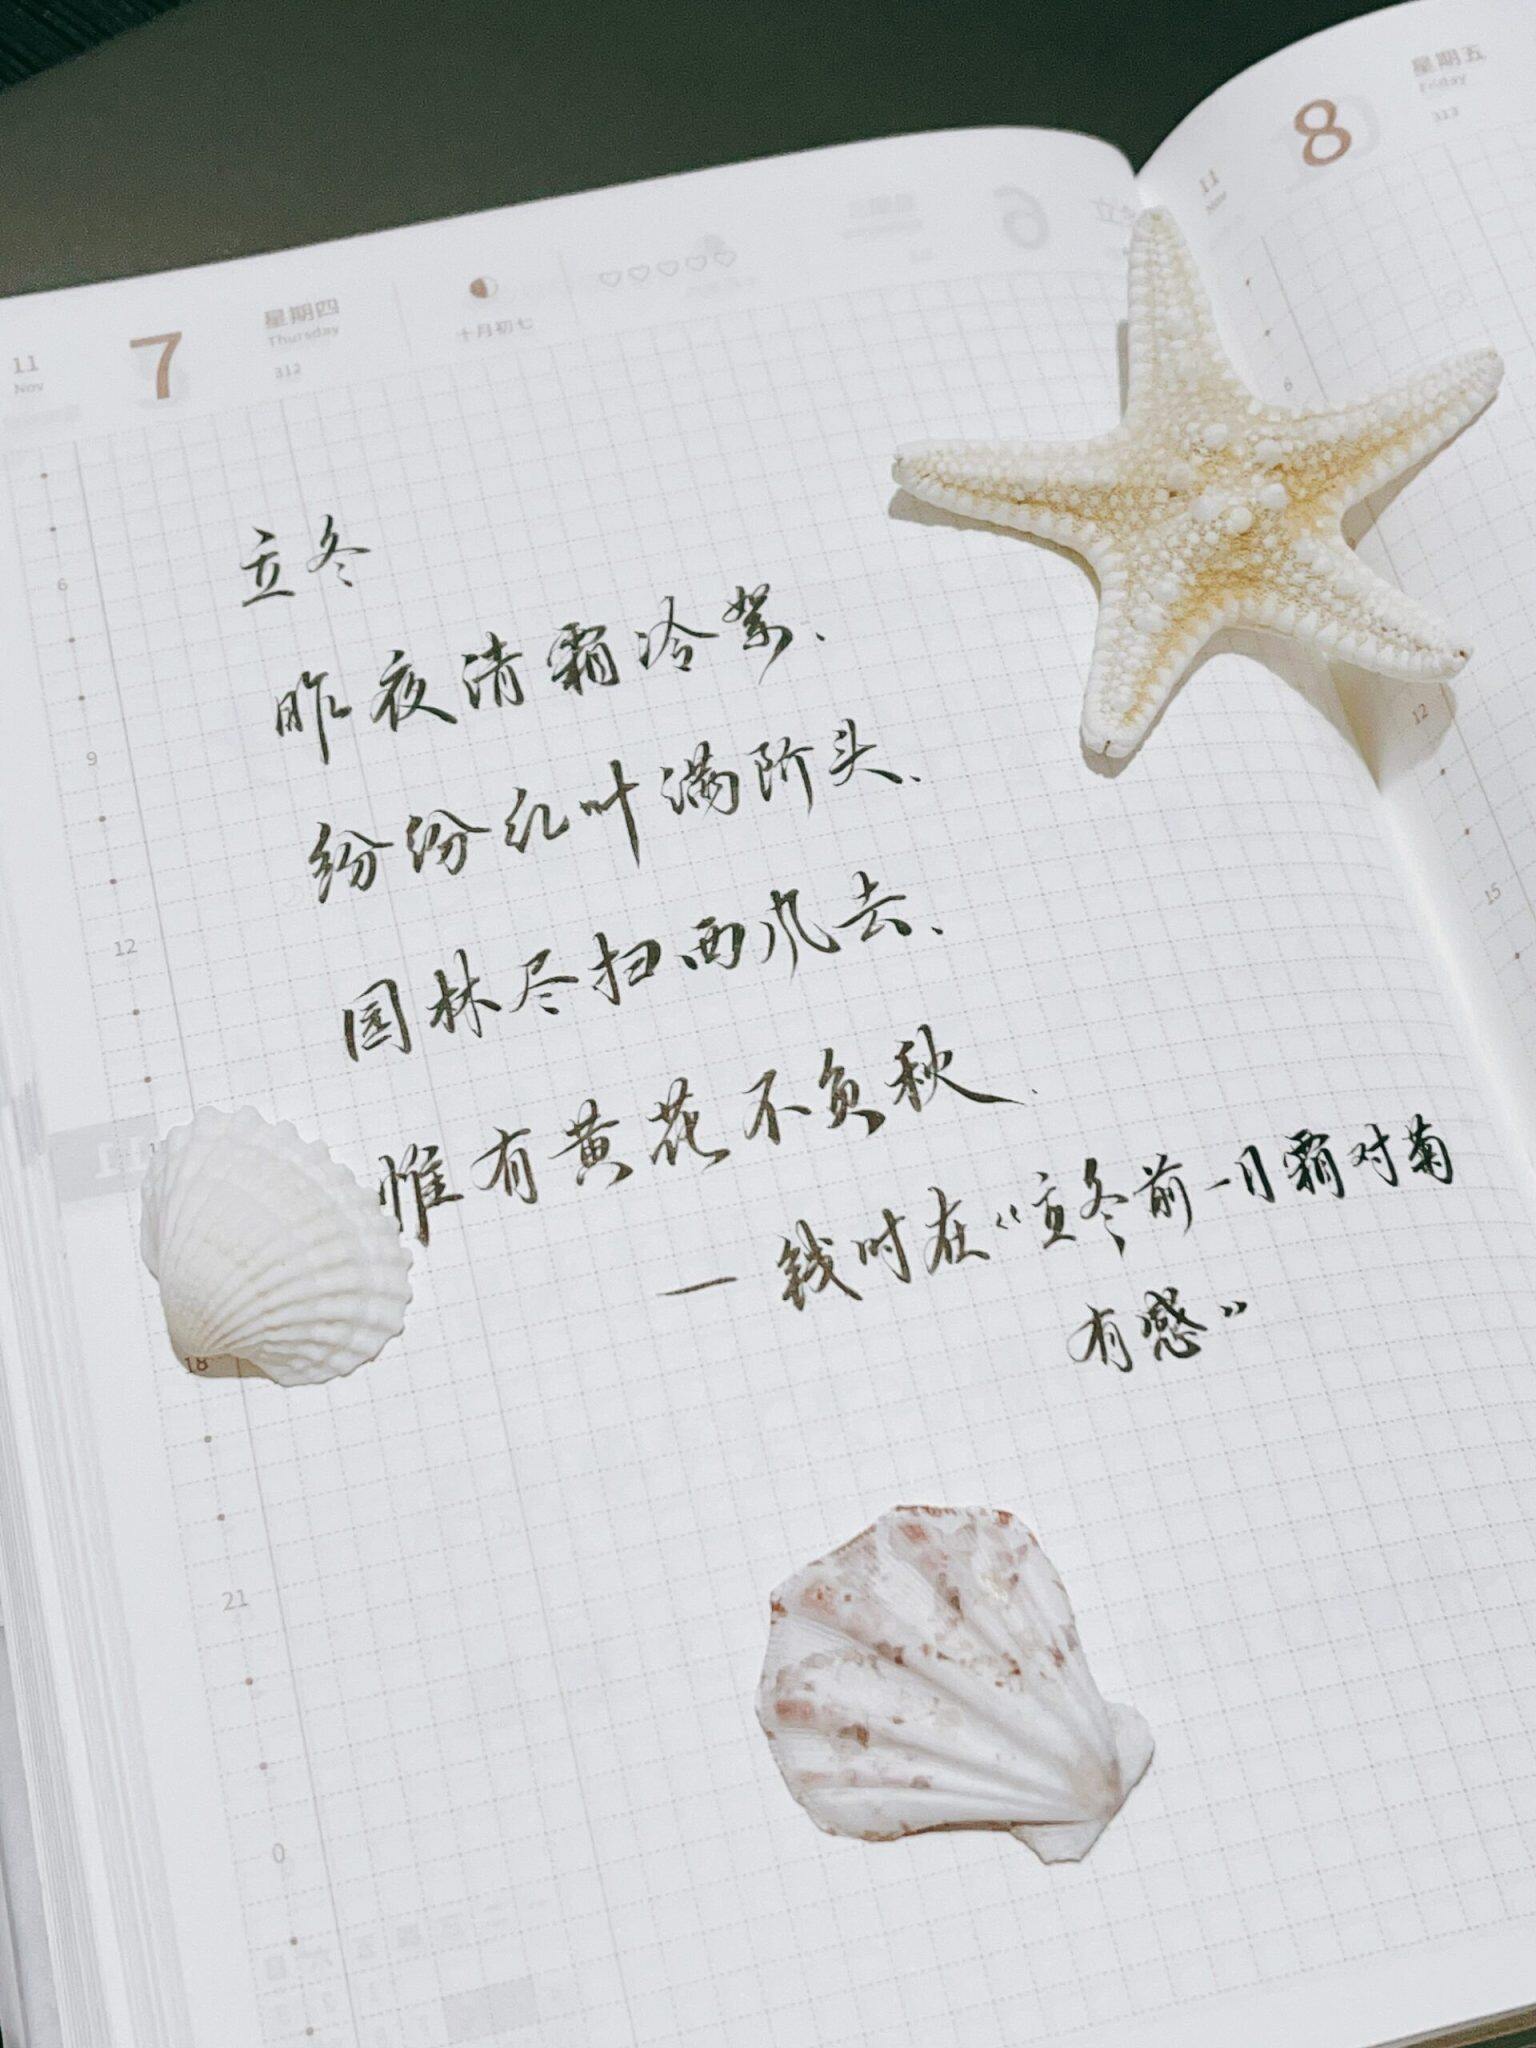 11
Nov
7
星期四
Thursday
312
十月初七
11
8
星期五
Friday
313
立冬
昨夜清霜冷絮、
纷纷红叶满阶头、
园林尽扫西风去、
惟有黄花不负秋、
— 钱时在“立冬前一日霜对菊
有感”
6
9
12
18
21
0
6
12
15